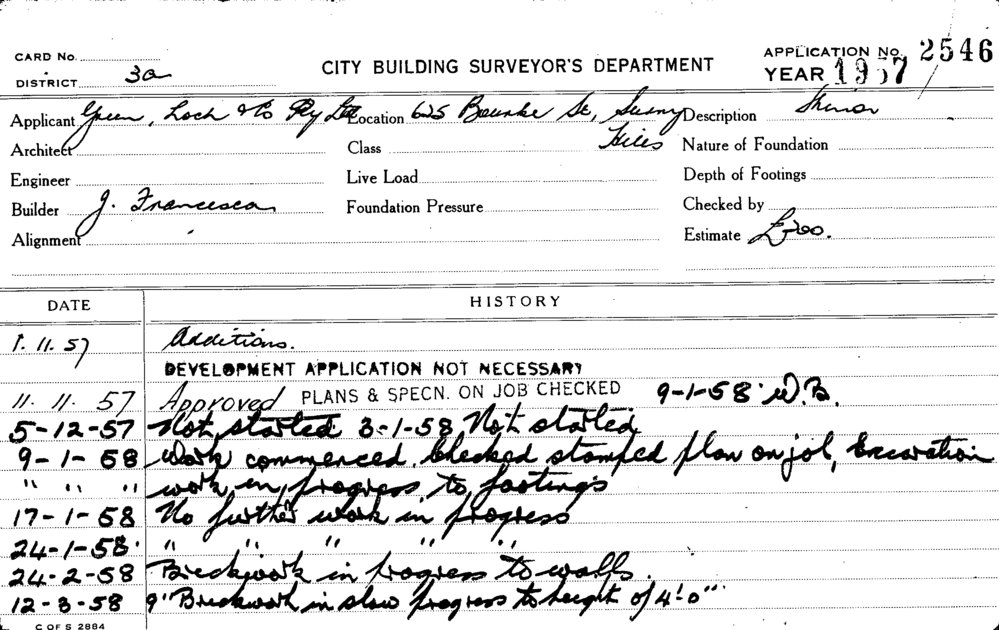 CARD No.
DISTRICT 3a
CITY BUILDING SURVEYOR'S DEPARTMENT
APPLICATION No. 2546
YEAR 1957
Applicant Green, Loch & Co Pty Ltd Location 625 Bourke St, Surry Hills Description
Architect Class Nature of Foundation
Engineer Live Load Depth of Footings
Builder J. Francesca Foundation Pressure Checked by
Alignment Estimate
DATE HISTORY
1. 11. 57 Additions.
DEVELOPMENT APPLICATION NOT NECESSARY
11. 11. 57 Approved PLANS & SPECN. ON JOB CHECKED 9-1-58 W.B.
5-12-57 Not started 3-1-58 Not started
9-1-58 Work commenced. Checked stamped plan on job, Excavation
" " " work in progress to footings
17-1-58 No further work in progress
24-1-58 " " " " "
24-2-58 Brickwork in progress to walls.
12-3-58 9" Brickwork in slow progress to height of 4'-0"
C OF S 2884